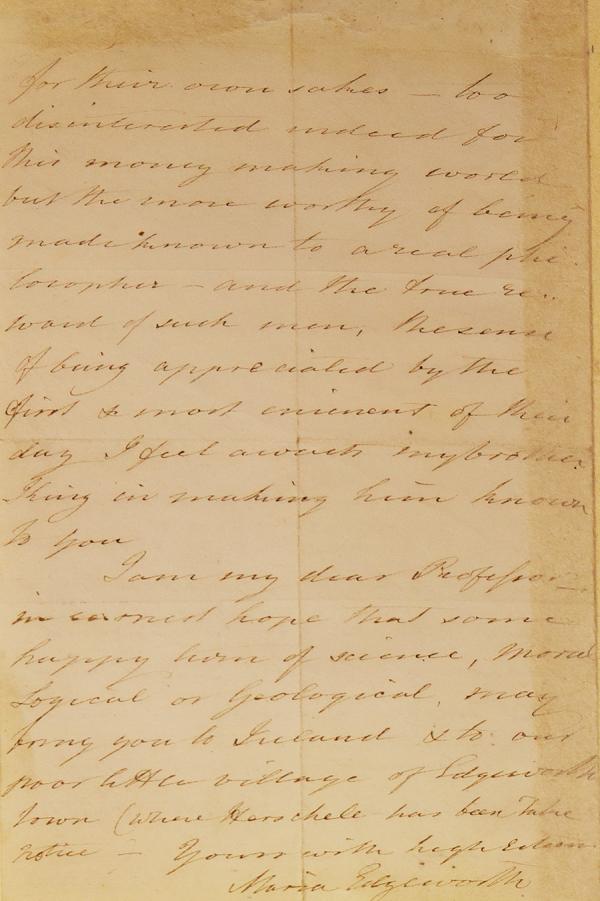 for their own sakes — too
disinterested indeed for
this money making world
but the more worthy of being
made known to a real phi-
losopher — and the true re-
ward of such men, the sense
of being appreciated by the
first & most eminent of their
day I feel awaits my brother
King in making him known
to you
I am my dear Professor —
in earnest hope that some
happy turn of science, Moral
Logical or Geological, may
bring you to Ireland & to our
poor little village of Edgeworth
town (where Herschele has been
— Yours with high esteem
Maria Edgeworth